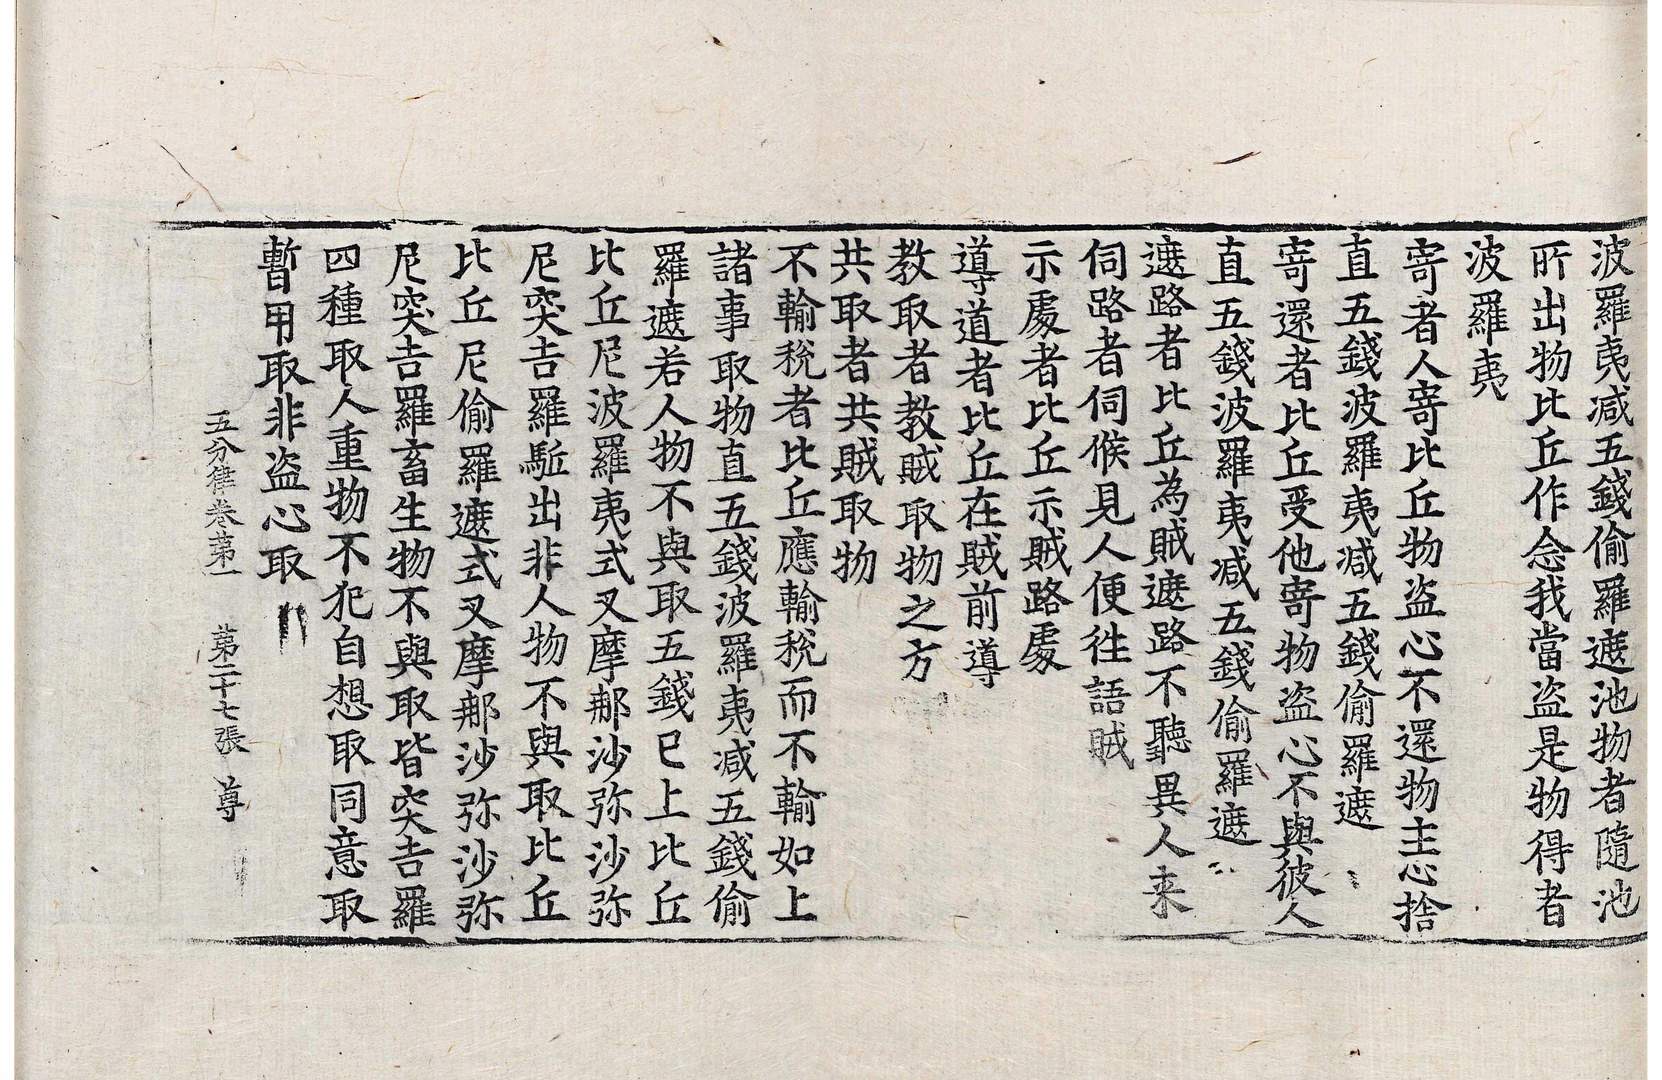 波羅夷减五錢偷羅遮池物者隨池
所出物比丘作念我當盗是物得者
波羅夷
寄者人寄比丘物盗心不還物主心捨
直五錢波羅夷减五錢偷羅遮
寄還者比丘受他寄物盗心不與彼人
直五錢波羅夷减五錢偷羅遮
遮路者比丘為賊遮路不聽異人来
伺路者伺候見人便往語賊
示處者比丘示賊路處
導道者比丘在賊前導
教取者教賊取物之方
共取者共賊取物
不輸稅者比丘應輸稅而不輸如上
諸事取物直五錢波羅夷减五錢偷
羅遮若人物不與取五錢已上比丘
比丘尼波羅夷式叉摩那沙弥沙弥
尼突吉羅駈出非人物不與取比丘
比丘尼偷羅遮式叉摩那沙弥沙弥
尼突吉羅畜生物不與取皆突吉羅
四種取人重物不犯自想取同意取
暫用取非盗心取
五分律卷第一 第二十七張 尊